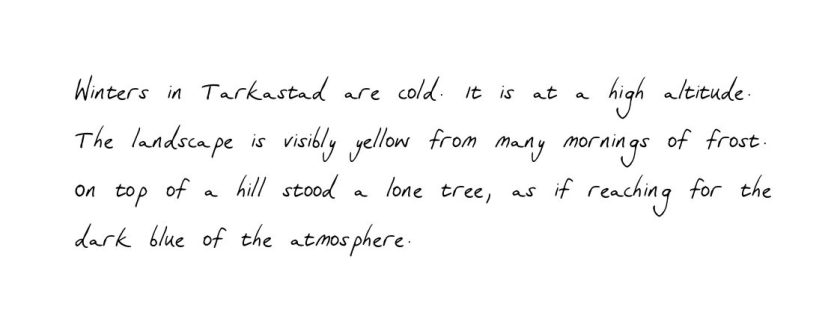 Winters in Tarkastad are cold. It is at a high altitude.
The landscape is visibly yellow from many mornings of frost.
On top of a hill stood a lone tree, as if reaching for the
dark blue of the atmosphere.